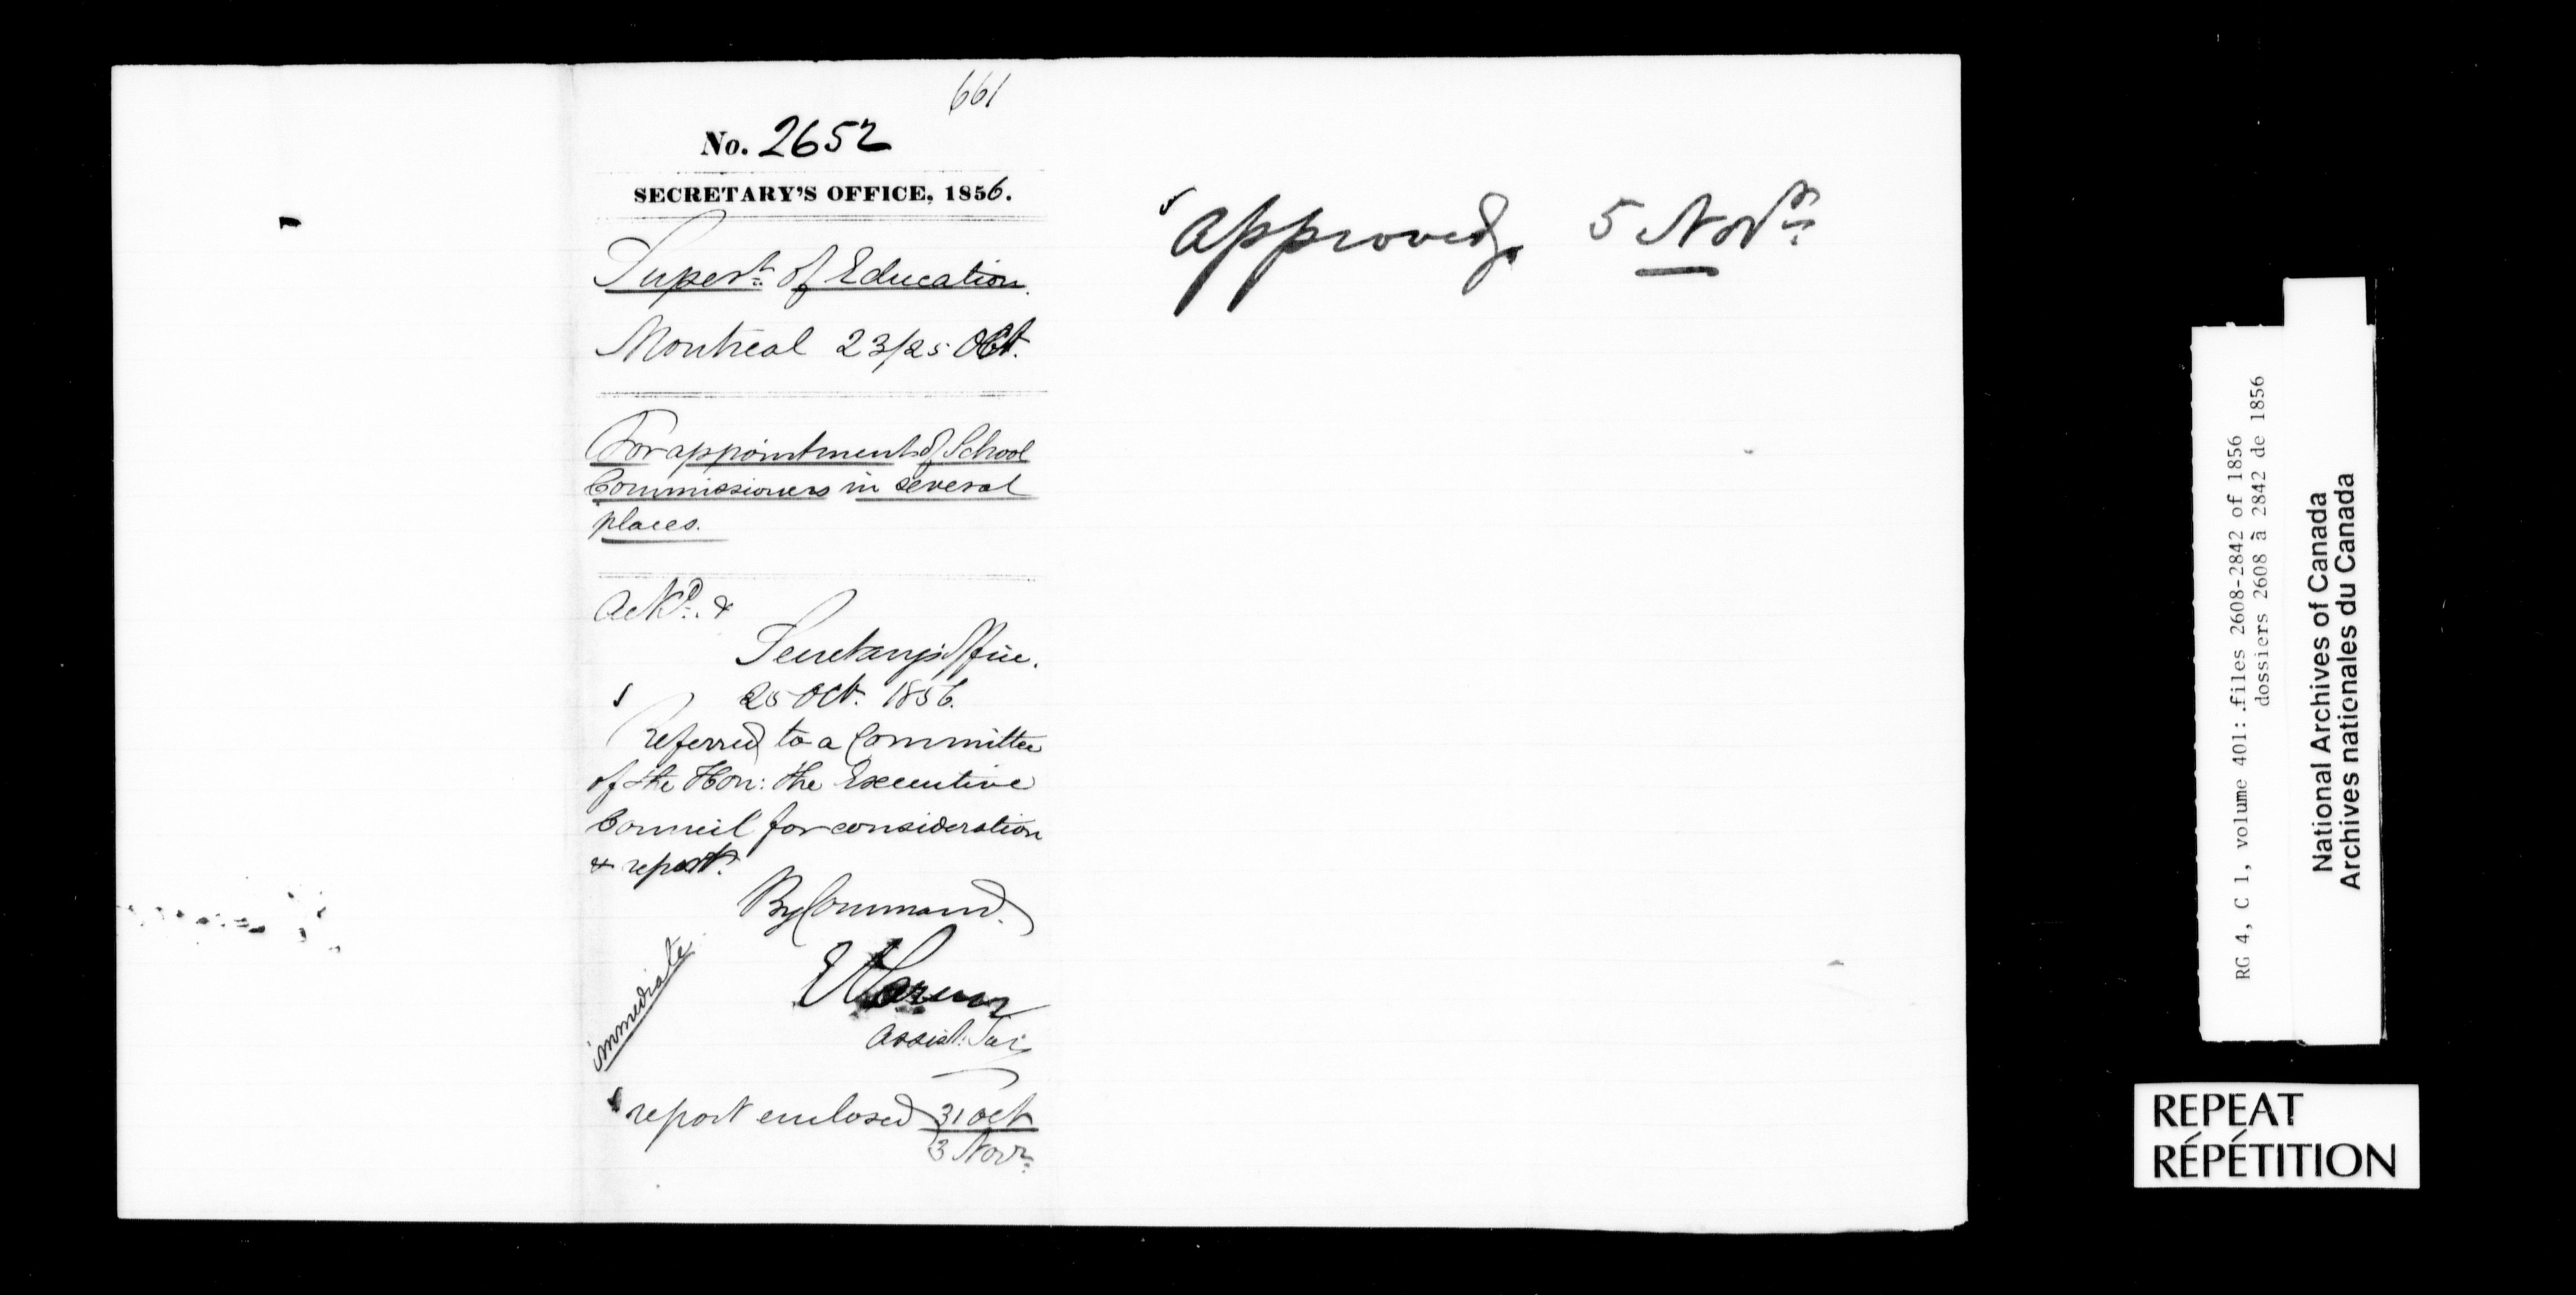 661
No. 2652
SECRETARY'S OFFICE, 1856.
Supert. of Education.
Montreal 23/25 Oct.
For appointment of School
Commissioners in several
places.
Ackd. &
Secretary's Office.
25 Oct. 1856.
Referred to a Committee
of the Hon: the Executive
Council for consideration
& report.
By Command.
Assist. Sec
immediate
report enclosed 31 Oct
3 Novr.
Approved. 5 Novr.
RG 4, C 1, volume 401: files 2608-2842 of 1856
dossiers 2608 à 2842 de 1856
National Archives of Canada
Archives nationales du Canada
REPEAT
RÉPÉTITION